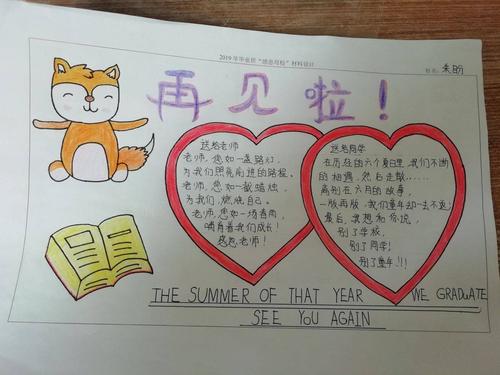 2019年毕业班“感恩母校”材料设计
姓名:朱盼
再见啦!
送给老师
老师,您如一盏路灯,
为我们照亮前进的路程。
老师,您如一截蜡烛,
为我们,燃烧自己。
老师,您如一场春雨,
哺育着我们成长!
感恩老师!
送给同学
在历经的六个夏日里,我们不断
的相遇,然后走散……
离别在六月的故事,
一版再版,我们童年却一去不返!
最后,我想和你说,
别了学校,
别了同学!
别了童年!!!
THE SUMMER OF THAT YEAR WE GRADUATE
SEE YOU AGAIN